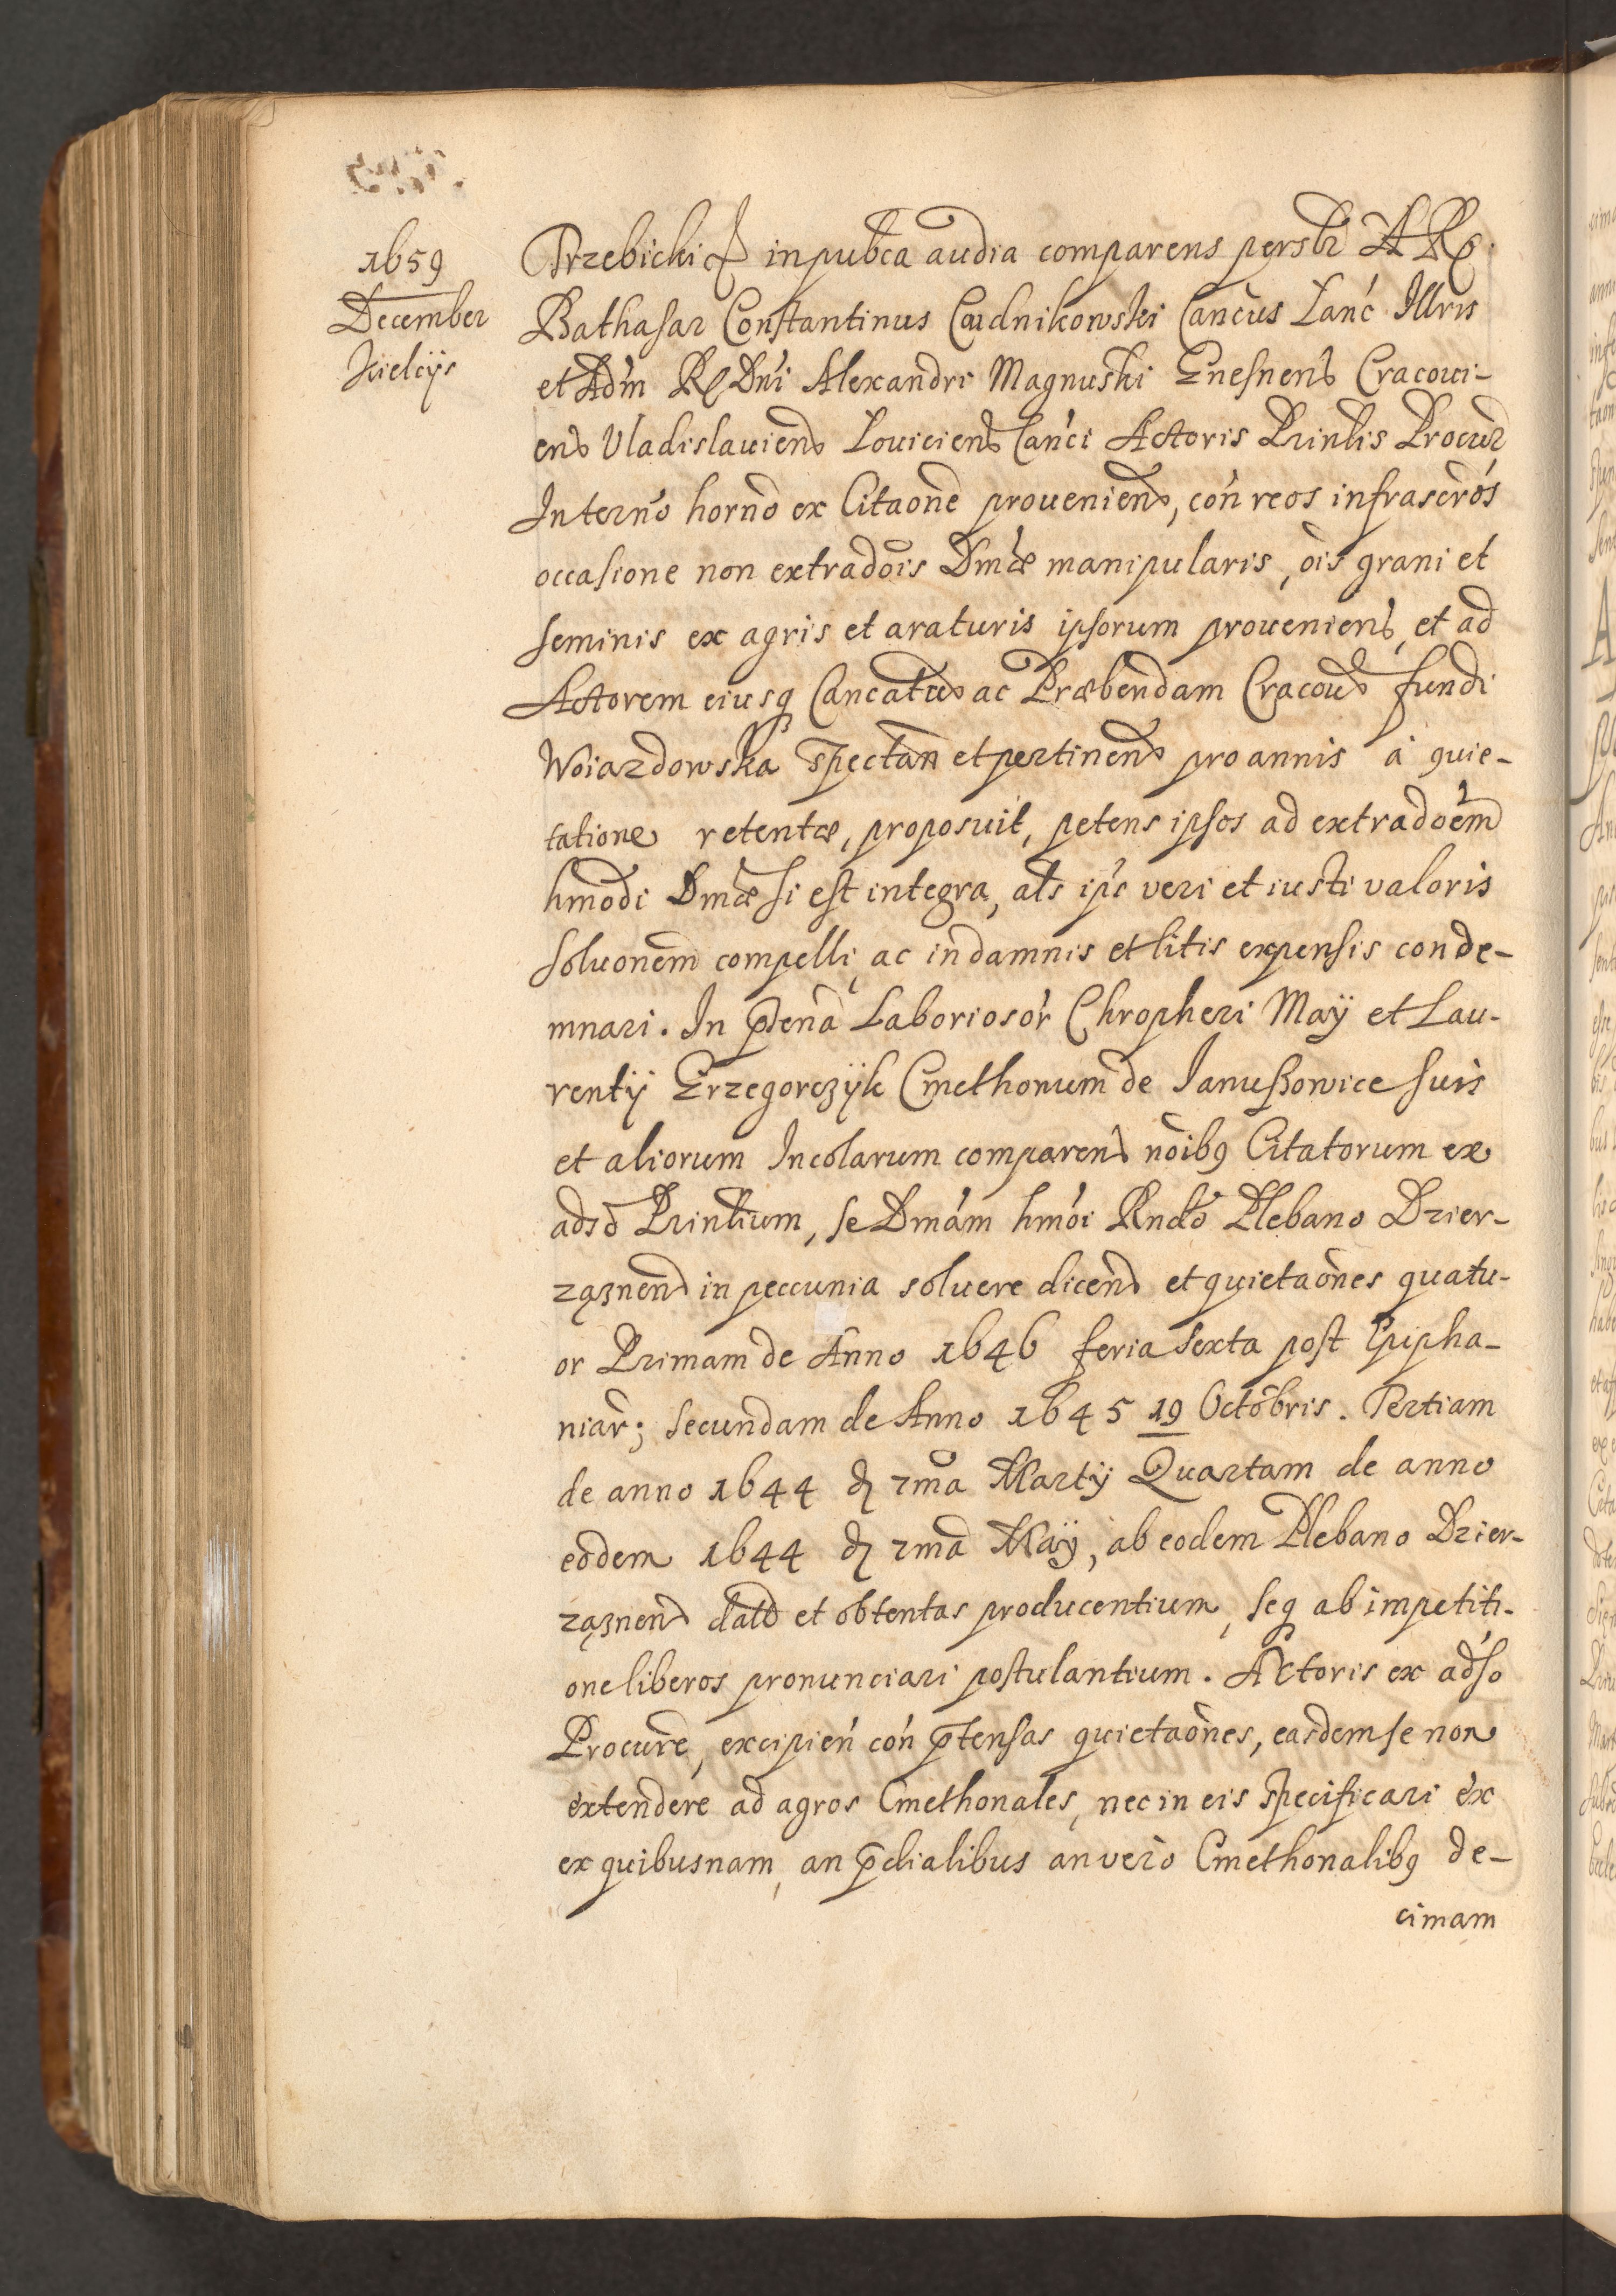 1659
December
Kielcijs
Trzebicki in pubca audia comparens perslr A R
Bathasar Constantinus Cudnikowski Cancus Lanc Illris
et Adm R Dni Alexandri Magnuski Gnesnens Cracovi-
ens Vladislaviens Loviciens Canci Actoris Prinlis Procur
In termo horno ex Citaone proveniens, con reos infrascros
occasione non extradois Dmæ manipularis, ois grani et
seminis ex agris et araturis ipsorum proveniens, et ad
Actorem eiusq Cancatus ac Præbendam Cracovs fundi
Woiazdowska spectan et pertinens pro annis à quie-
tatione retentæ, proposuit, petens ipsos ad extradoem
hmodi Dmæ si est integra, als ips veri et iusti valoris
soluonem compelli, ac in damnis et litis expensis conde-
mnari. In pdena Laboriosor Chropheri Maÿ et Lau-
rentij Grzegorczÿk Cmethonum de Janußowice suis
et aliorum Incolarum comparens noibq Citatorum ex
adso Prinlium, se Dmam hmoi Rndo Plebano Dzier-
ząznens in peccunia soluere dicens et quietaones quatu-
or Primam de Anno 1646 feria sexta post Epipha-
niar; secundam de Anno 1645 19 Octobris. Tertiam
de anno 1644 d 2ma Martij Quartam de anno
eodem 1644 d 2ma Maÿ, ab eodem Plebano Dzier-
ząznens dats et obtentas producentium, seq ab impetiti-
one liberos pronunciari postulantium. Actoris ex adso
Procure, excipien con ptensas quietaones, easdem se non
extendere ad agros Cmethonales, nec in eis specificari ex
ex quibusnam, an pdialibus an vero Cmethonalibq de-
cimam